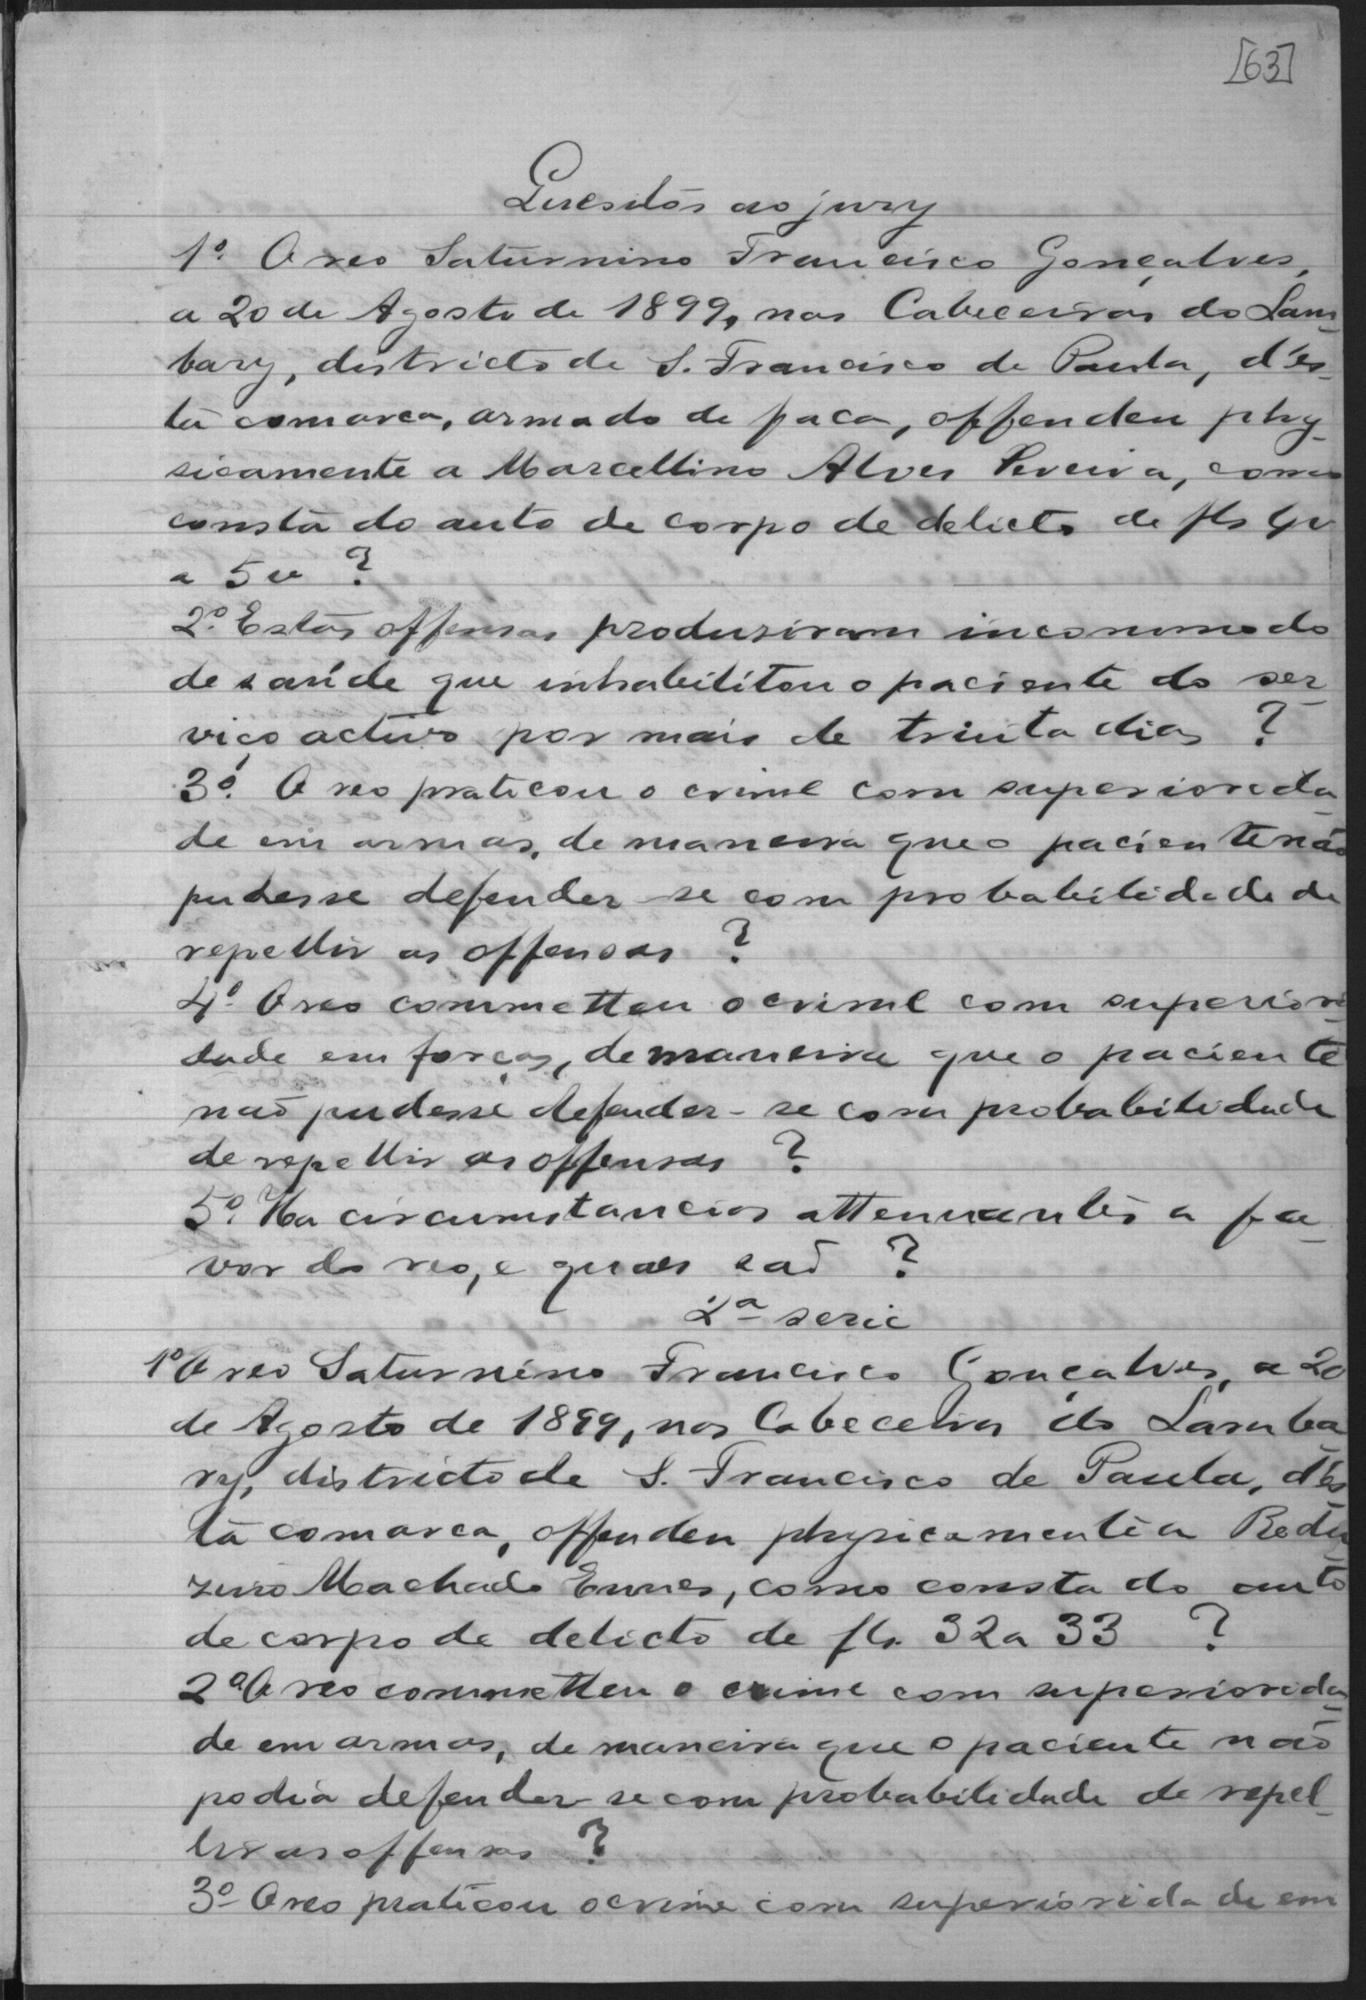 [63]
Quesitos ao jury
1º. O reo Saturnino Francisco Gonçalves,
a 20 de Agosto de 1899, nas Cabeceiras do Lam-
bary, districto de S. Francisco de Paula, d'es-
ta comarca, armado de faca, offendeu phy-
sicamente a Marcellino Alves Pereira, como
consta do auto de corpo de delicto de fls 4v
a 5v ?
2º. Estas offensas produsiram incommodo
de saúde que inhabilitou o paciente do ser
viço activo por mais de trinta dias ?
3º. O reo praticou o crime com superiorida
de em armas, de maneira que o paciente não
pudesse defender-se com probabilidade de
repellir as offensas ?
4º. O reo commetteu o crime com superiori-
dade em forças, de maneira que o paciente
não pudesse defender-se com probabilidade
de repellir as offensas ?
5º. Ha circumstancias attenuantes a fa-
vor do reo, e quaes são ?
2ª serie
1º O reo Saturnino Francisco Gonçalves, a 20
de Agosto de 1899, nas Cabeceiras do Lamba
ry, districto de S. Francisco de Paula, d'es-
ta comarca, offendeu physicamente a Redu
zino Machado Ennes, como consta do auto
de corpo de delicto de fls. 32 a 33 ?
2º O reo commetteu o crime com superiorida-
de em armas, de maneira que o paciente não
podia defender-se com probabilidade de repel-
lir as offensas ?
3º O reo praticou o crime com superioridade em